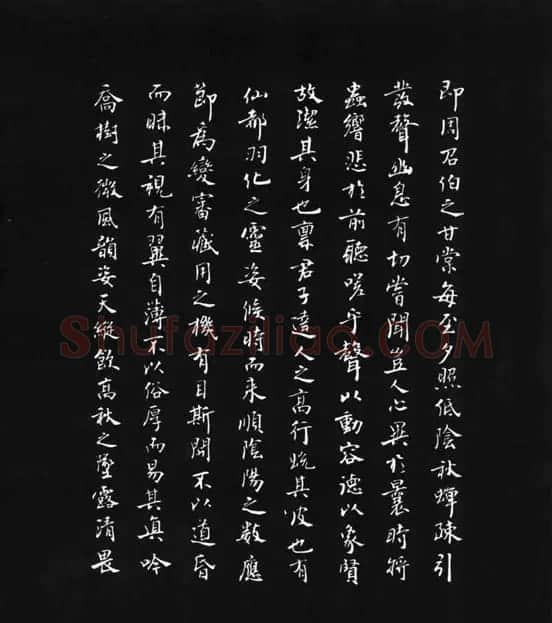 即周召伯之甘棠每至夕照低陰秋蟬疎引
發聲幽息有切嘗聞豈人心異於曩時將
蟲響悲於前聽嗟乎聲以動容德以象賢
故潔其身也稟君子達人之高行蛻其皮也有
仙都羽化之靈姿候時而来順陰陽之數應
節為變審藏用之機有目斯開不以道昏
而昧其視有翼自薄不以俗厚而易其真吟
喬樹之微風韻姿天縱飲高秋之墜露清畏
Shufaziliao.COM